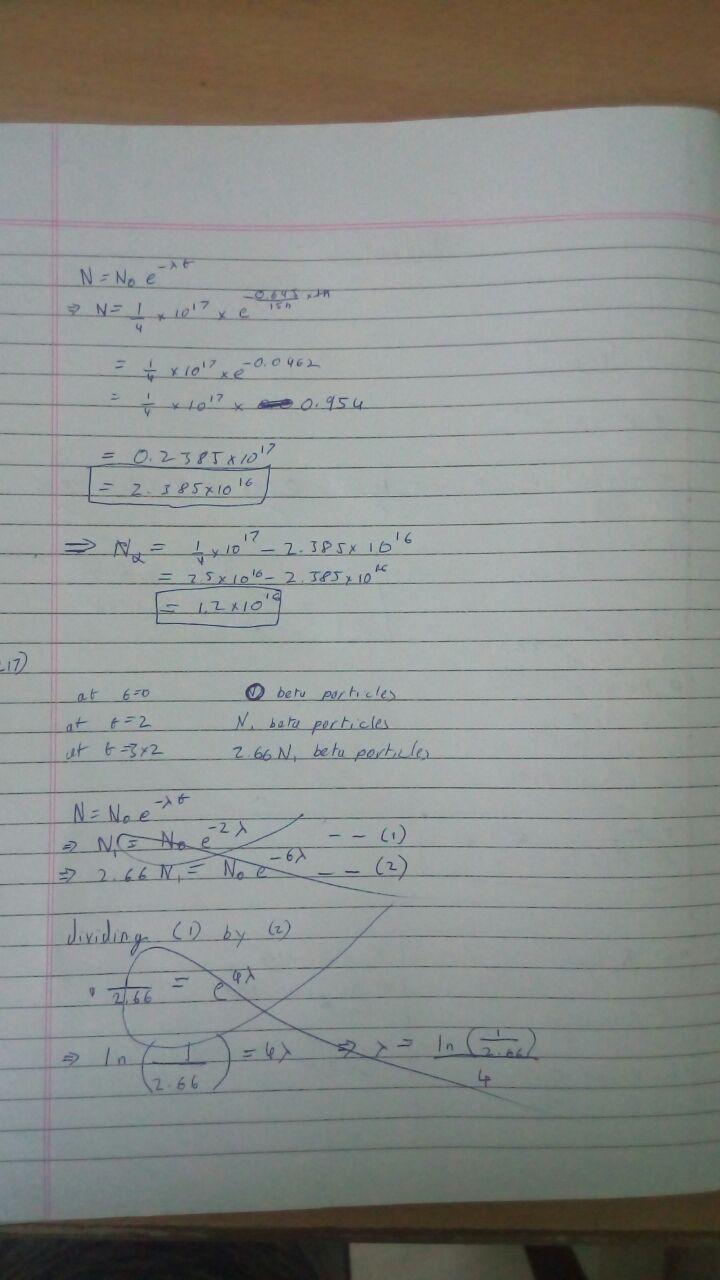 N = N₀ e^{-λt}
⇒ N = 1/4 × 10^{17} × e^{-0.693/15h × 1h}
= 1/4 × 10^{17} × e^{-0.0462}
= 1/4 × 10^{17} × 0.954
= 0.2385 × 10^{17}
= 2.385 × 10^{16}
⇒ N_α = 1/4 × 10^{17} - 2.385 × 10^{16}
= 2.5 × 10^{16} - 2.385 × 10^{16}
= 1.2 × 10^{16}
17)
at t=0 beta particles
at t=2 N₁ beta particles
at t=3×2 2.66 N₁ beta particles
N = N₀ e^{-λt}
⇒ N₁ = N₀ e^{-2λ} -- (1)
⇒ 2.66 N₁ = N₀ e^{-6λ} -- (2)
dividing (1) by (2)
1/2.66 = e^{4λ}
⇒ ln (1/2.66) = 4λ ⇒ λ = ln (1/2.66)/4